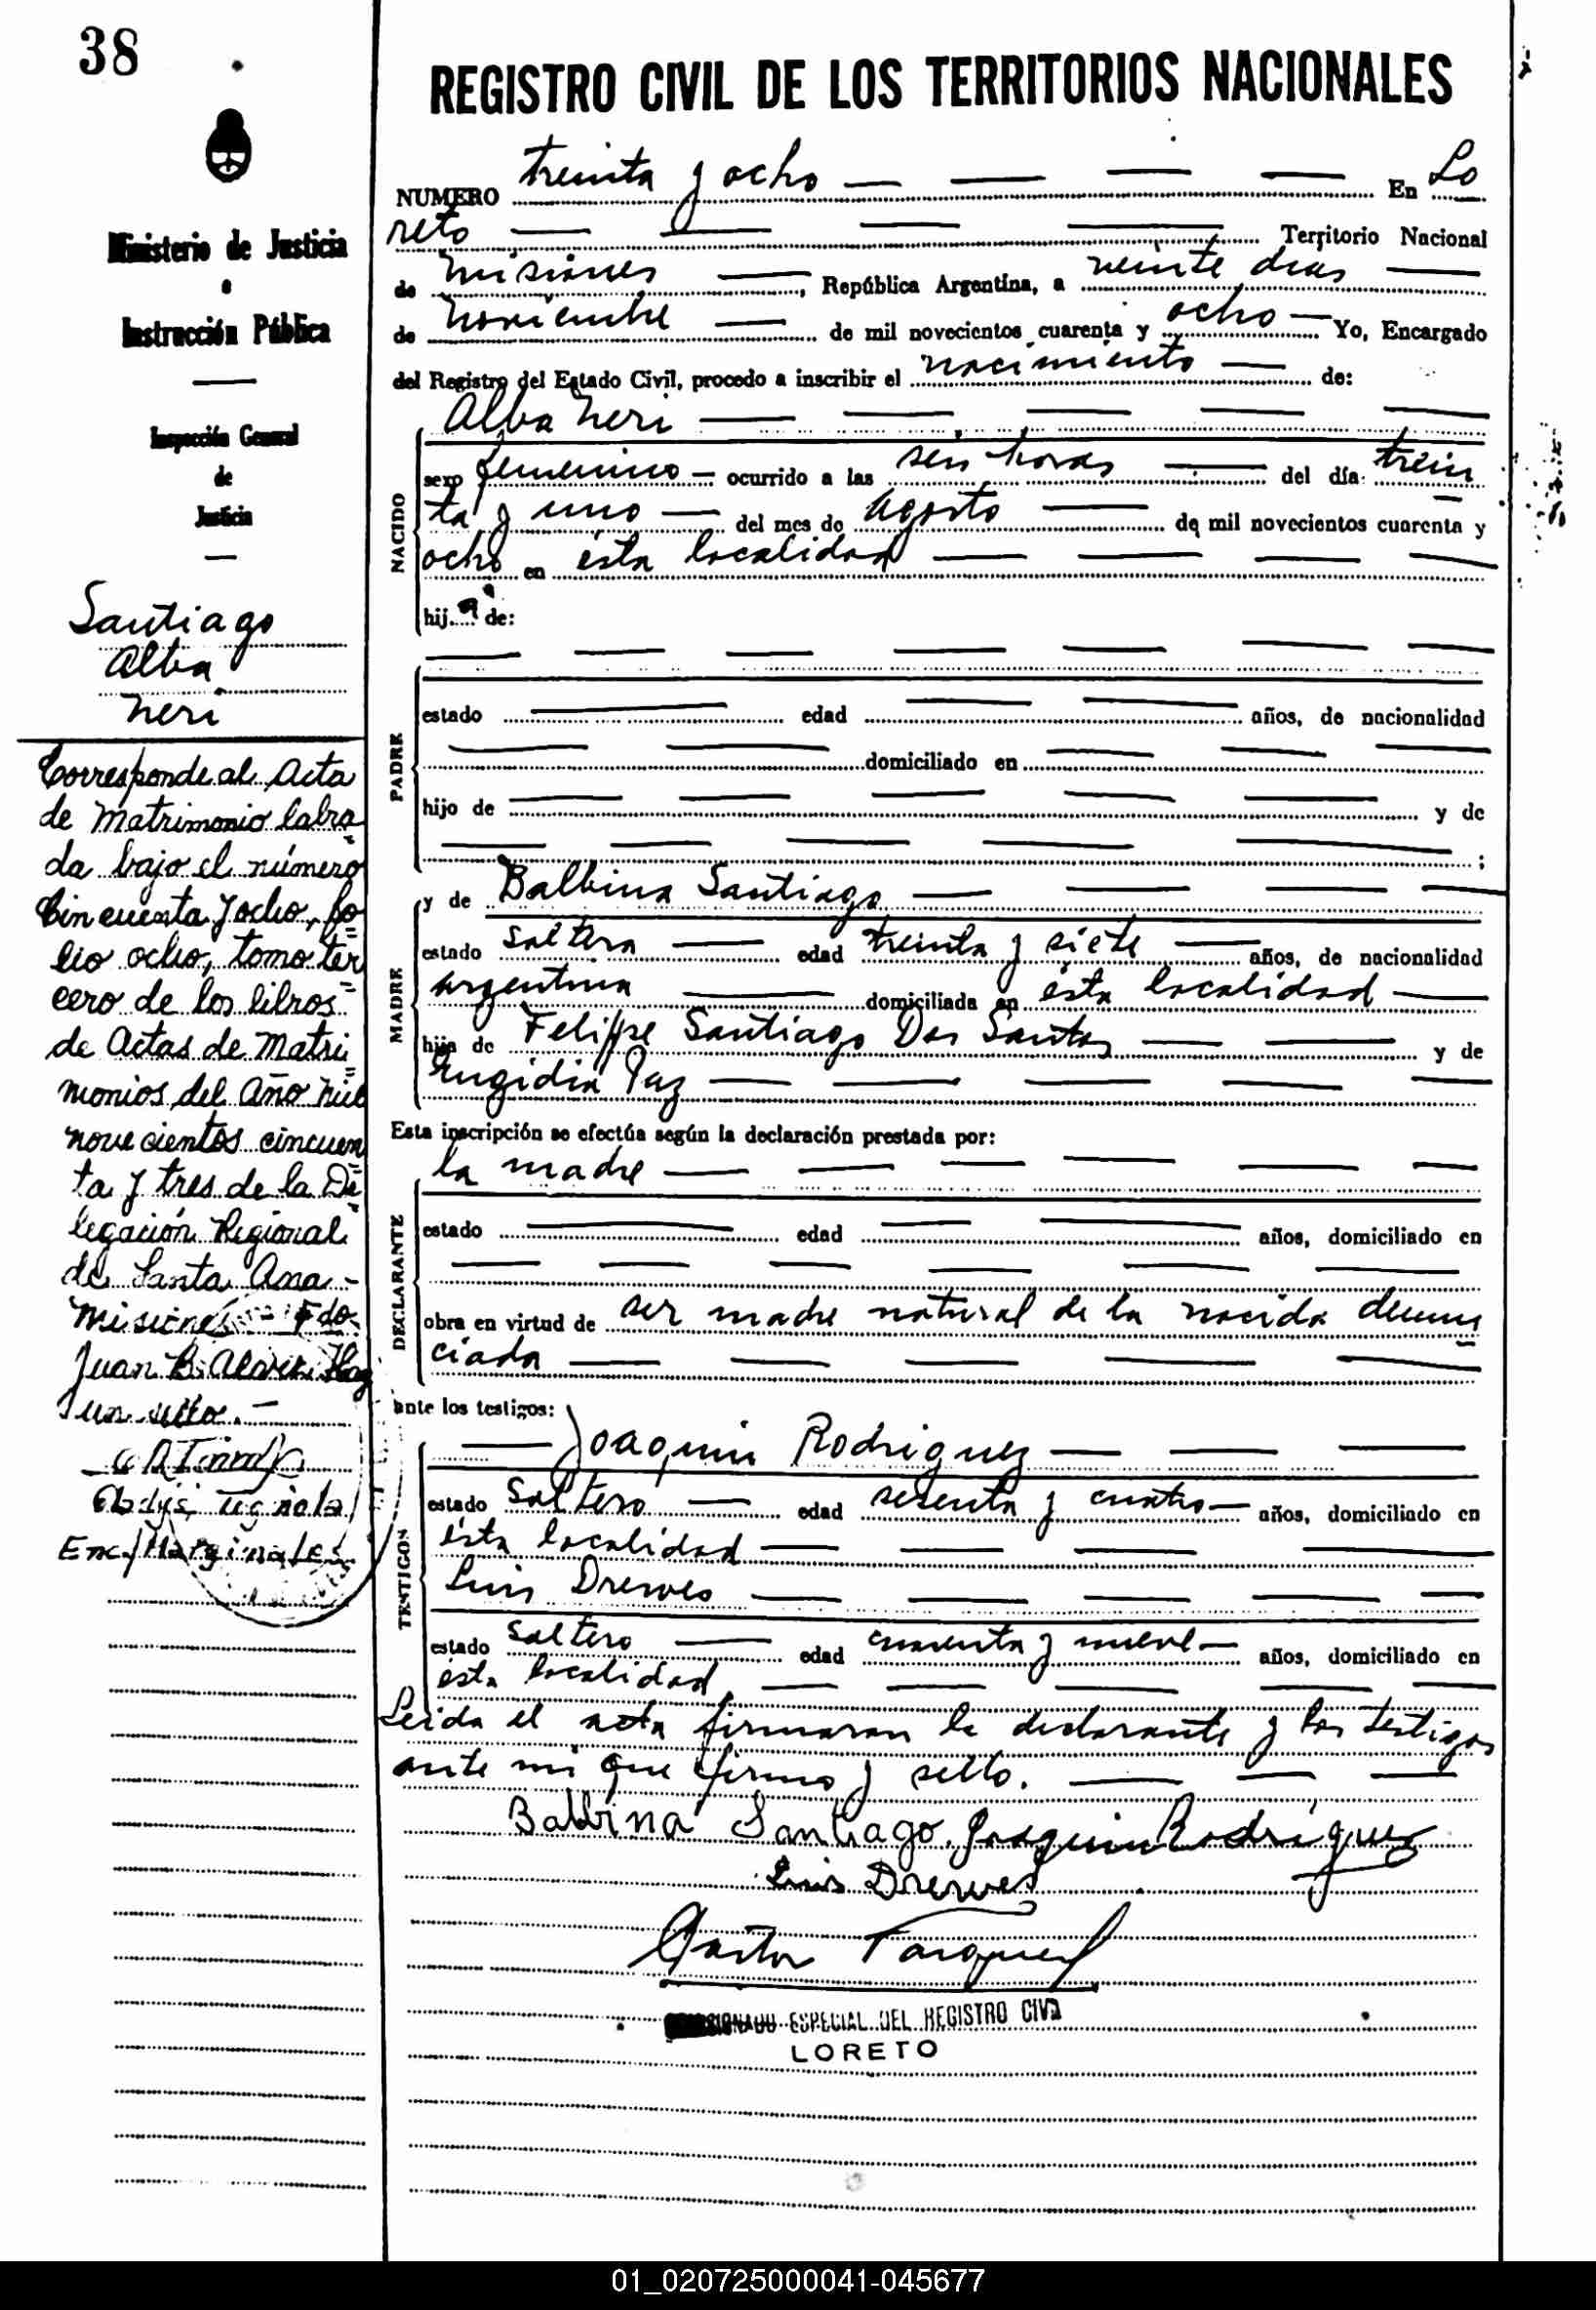 38
REGISTRO CIVIL DE LOS TERRITORIOS NACIONALES
Ministerio de Justicia
e
Instrucción Pública
Inspección General
de
Justicia
Santiago
Alba
Neri
Corresponde al Acta
de Matrimonio labra
da bajo el número
Cincuenta y ocho, fo
lio ocho, tomo ter
cero de los libros
de Actas de Matri
monios del Año mil
novecientos cincuen
ta y tres de la De
legación Regional
de Santa Ana -
Misiones - Fdo.
Juan B. Hay
un sello. -
Enc/Marginales
NUMERO treinta y ocho En Lo
reto Territorio Nacional
de Misiones, República Argentina, a veinte dias
de Noviembre de mil novecientos cuarenta y ocho Yo, Encargado
del Registro del Estado Civil, procedo a inscribir el nacimiento de:
Alba Neri
NACIDO
sexo femenino ocurrido a las seis horas del día trein
ta y uno del mes de Agosto de mil novecientos cuarenta y
ocho en ésta localidad
hij a de:
PADRE
estado edad años, de nacionalidad
domiciliado en
hijo de y de
;
MADRE
y de Balbina Santiago
estado soltera edad treinta y siete años, de nacionalidad
argentina domiciliada en ésta localidad
hija de Felippe Santiago Dos Santos y de
Paz
Esta inscripción se efectúa según la declaración prestada por:
la madre
DECLARANTE
estado edad años, domiciliado en
obra en virtud de ser madre natural de la nacida denun
ciada
ante los testigos:
TESTIGOS
Joaquin Rodriguez
estado soltero edad sesenta y cuatro años, domiciliado en
ésta localidad
Luis Drewes
estado soltero edad cuarenta y nueve años, domiciliado en
ésta localidad
Leida el acta firmaran la declarante y los testigos
ante mi que firmo y sello.
Balbina Santiago Joaquin Rodriguez
Luis Drewes
ESPECIAL DEL REGISTRO CIVIL
LORETO
01_020725000041-045677